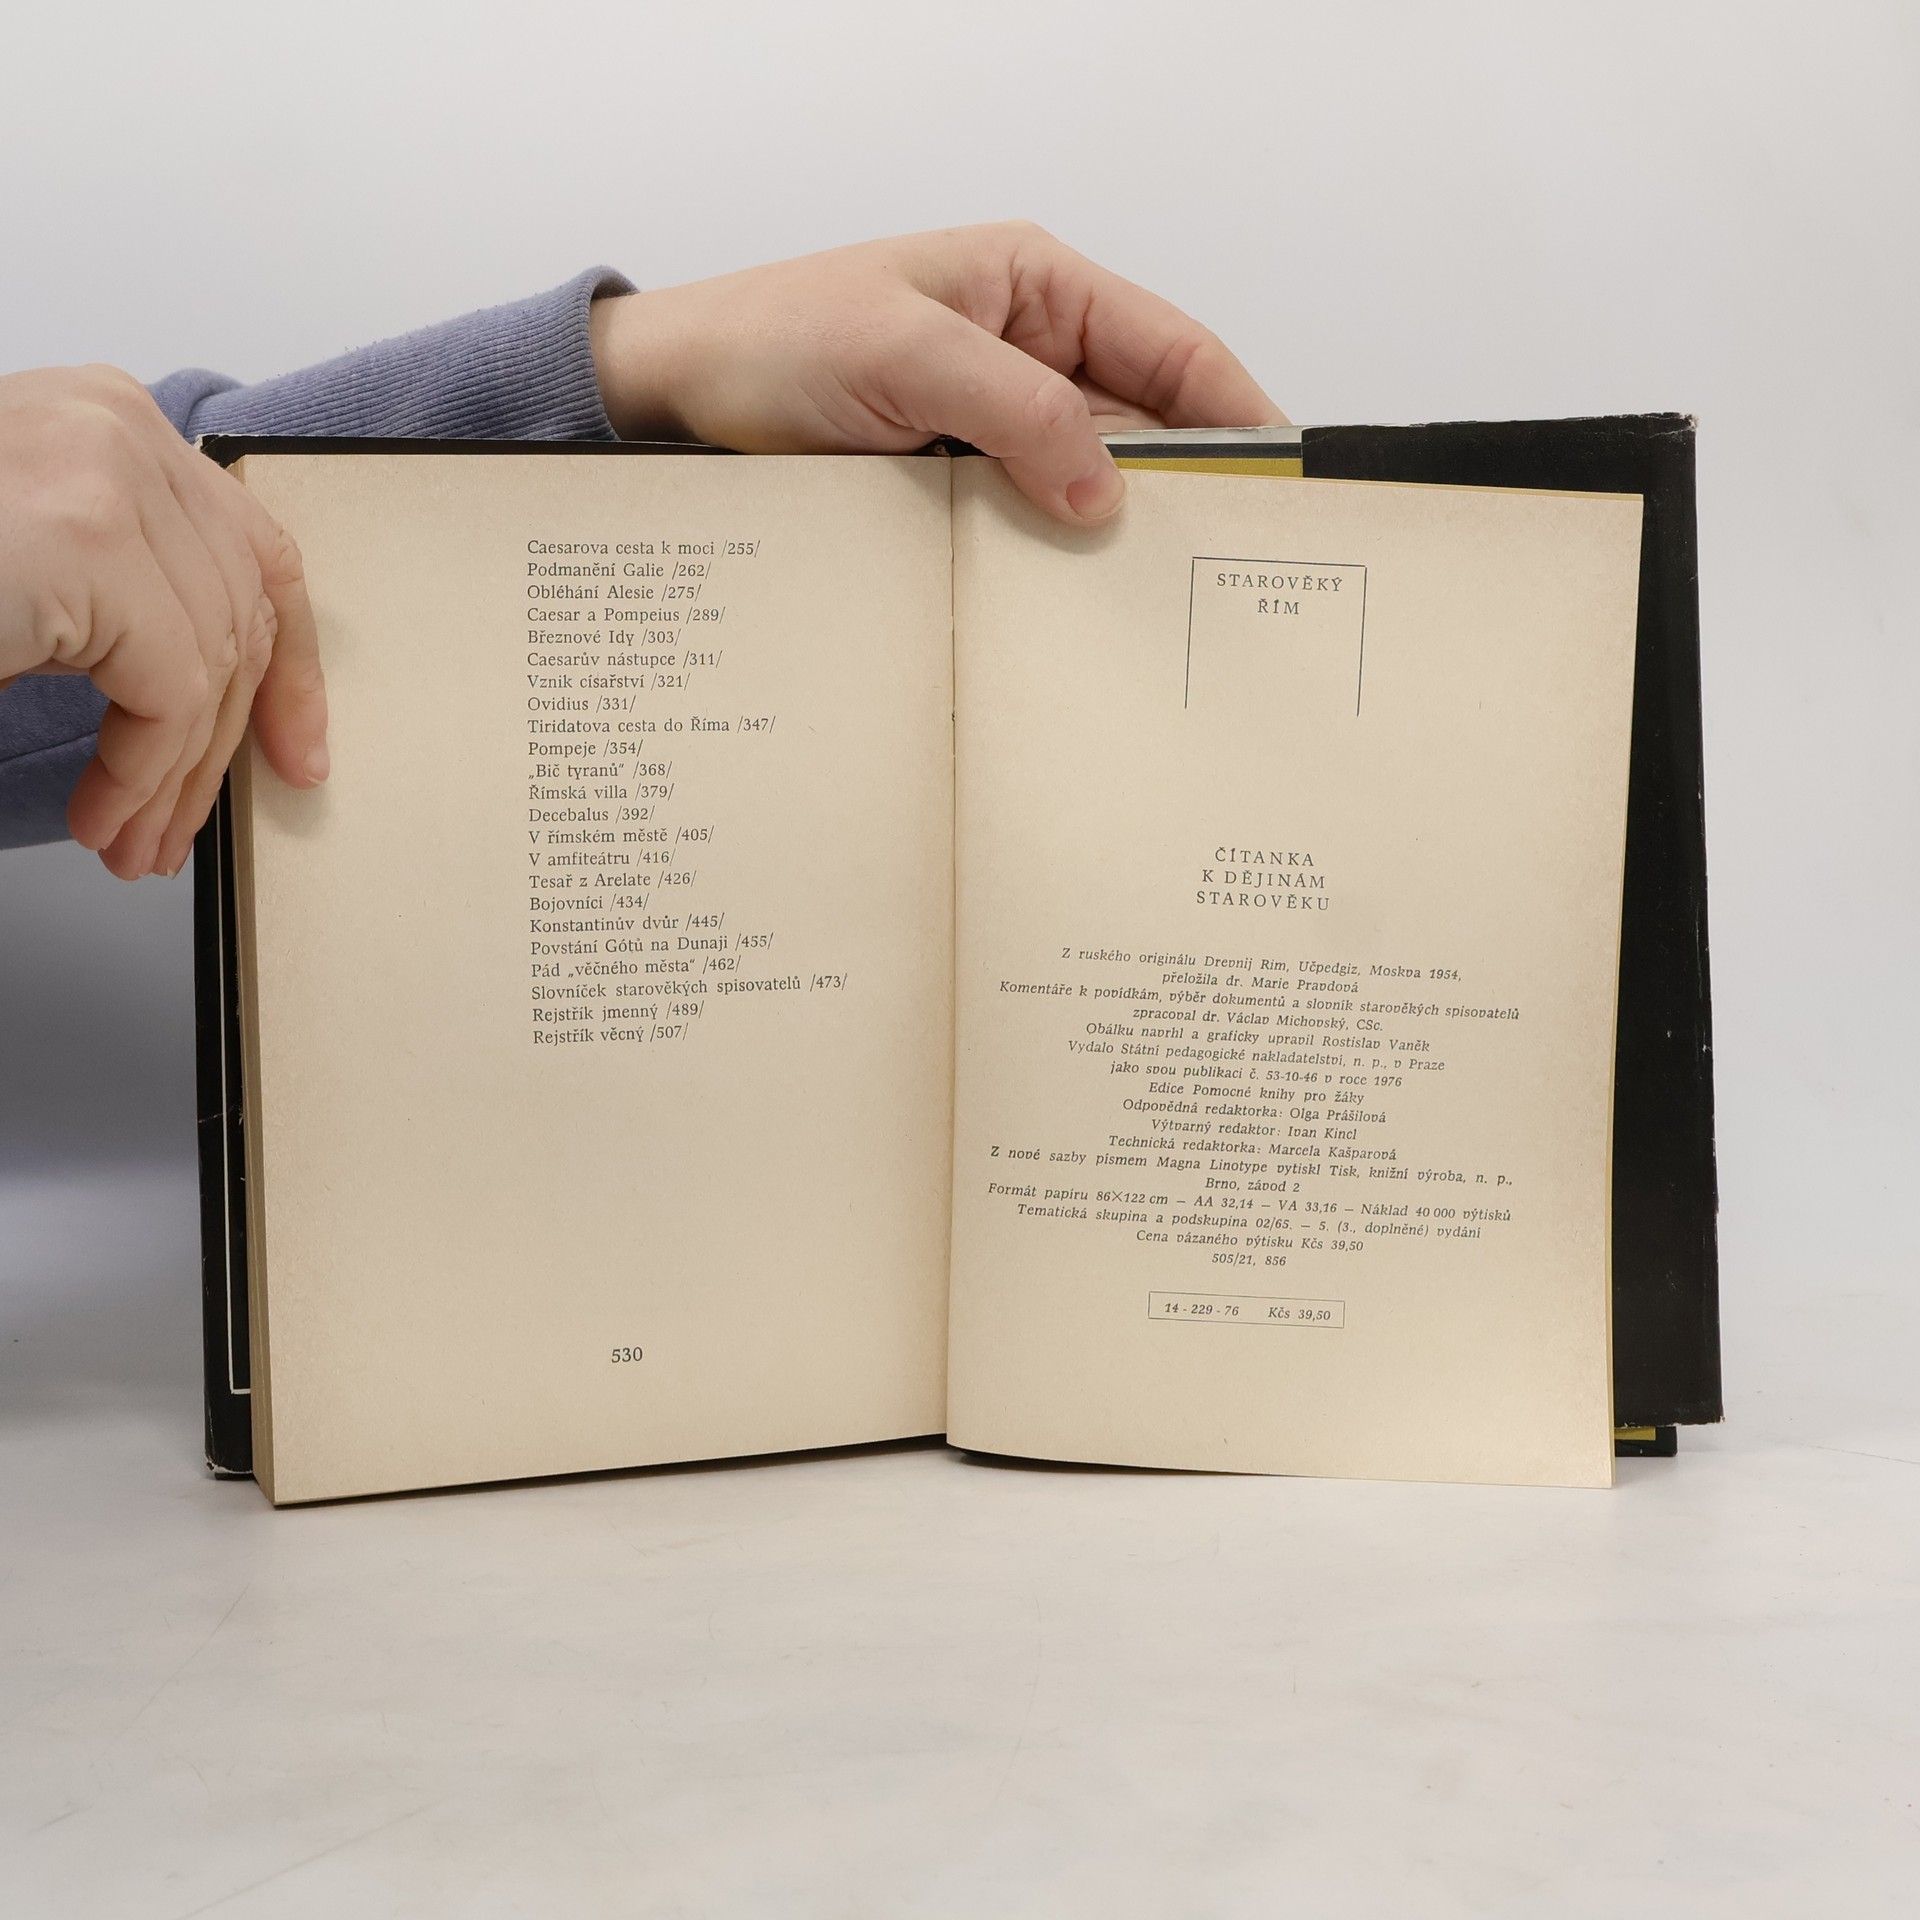 Caesarova cesta k moci /255/
Podmanění Galie /262/
Obléhání Alesie /275/
Caesar a Pompeius /289/
Březnové Idy /303/
Caesarův nástupce /311/
Vznik císařství /321/
Ovidius /331/
Tiridatova cesta do Říma /347/
Pompeje /354/
„Bič tyranů“ /368/
Římská villa /379/
Decebalus /392/
V římském městě /405/
V amfiteátru /416/
Tesař z Arelate /426/
Bojovníci /434/
Konstantinův dvůr /445/
Povstání Gótů na Dunaji /455/
Pád „věčného města“ /462/
Slovníček starověkých spisovatelů /473/
Rejstřík jmenný /489/
Rejstřík věcný /507/
530
STAROVĚKÝ
ŘÍM
ČÍTANKA
K DĚJINÁM
STAROVĚKU
Z ruského originálu Drevnij Rim, Učpedgiz, Moskva 1954,
přeložila dr. Marie Pravdová
Komentáře k povídkám, výběr dokumentů a slovník starověkých spisovatelů
zpracoval dr. Václav Michovský, CSc.
Obálku navrhl a graficky upravil Rostislav Vaněk
Vydalo Státní pedagogické nakladatelství, n. p., v Praze
jako svou publikaci č. 53-10-46 v roce 1976
Edice Pomocné knihy pro žáky
Odpovědná redaktorka: Olga Prášilová
Výtvarný redaktor: Ivan Kincl
Technická redaktorka: Marcela Kašparová
Z nové sazby písmem Magna Linotype vytiskl Tisk, knižní výroba, n. p.,
Brno, závod 2
Formát papíru 86×122 cm — AA 32,14 — VA 33,16 — Náklad 40 000 výtisků
Tematická skupina a podskupina 02/65. — 5. (3., doplněné) vydání
Cena vázaného výtisku Kčs 39,50
505/21, 856
14 - 229 - 76 Kčs 39,50